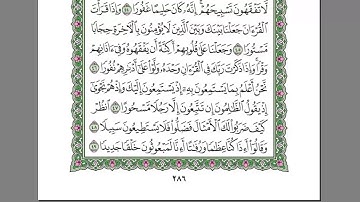 لَّا تَفْقَهُونَ تَسْبِيحَهُمْ إِنَّهُ كَانَ حَلِيمًا غَفُورًا ﴿٤٤﴾ وَإِذَا قَرَأْتَ
الْقُرْءَانَ جَعَلْنَا بَيْنَكَ وَبَيْنَ الَّذِينَ لَا يُؤْمِنُونَ بِالْءَاخِرَةِ حِجَابًا
مَّسْتُورًا ﴿٤٥﴾ وَجَعَلْنَا عَلَىٰ قُلُوبِهِمْ أَكِنَّةً أَن يَفْقَهُوهُ وَفِي ءَاذَانِهِمْ
وَقْرًا وَإِذَا ذَكَرْتَ رَبَّكَ فِي الْقُرْءَانِ وَحْدَهُ وَلَّوْا عَلَىٰ أَدْبَٰرِهِمْ نُفُورًا ﴿٤٦﴾
نَّحْنُ أَعْلَمُ بِمَا يَسْتَمِعُونَ بِهِ إِذْ يَسْتَمِعُونَ إِلَيْكَ وَإِذْ هُمْ نَجْوَىٰ
إِذْ يَقُولُ الظَّٰلِمُونَ إِن تَتَّبِعُونَ إِلَّا رَجُلًا مَّسْحُورًا ﴿٤٧﴾ انظُرْ
كَيْفَ ضَرَبُوا لَكَ الْأَمْثَالَ فَضَلُّوا فَلَا يَسْتَطِيعُونَ سَبِيلًا ﴿٤٨﴾
وَقَالُوا أَءِذَا كُنَّا عِظَٰمًا وَرُفَٰتًا أَءِنَّا لَمَبْعُوثُونَ خَلْقًا جَدِيدًا ﴿٤٩﴾
٢٨٦